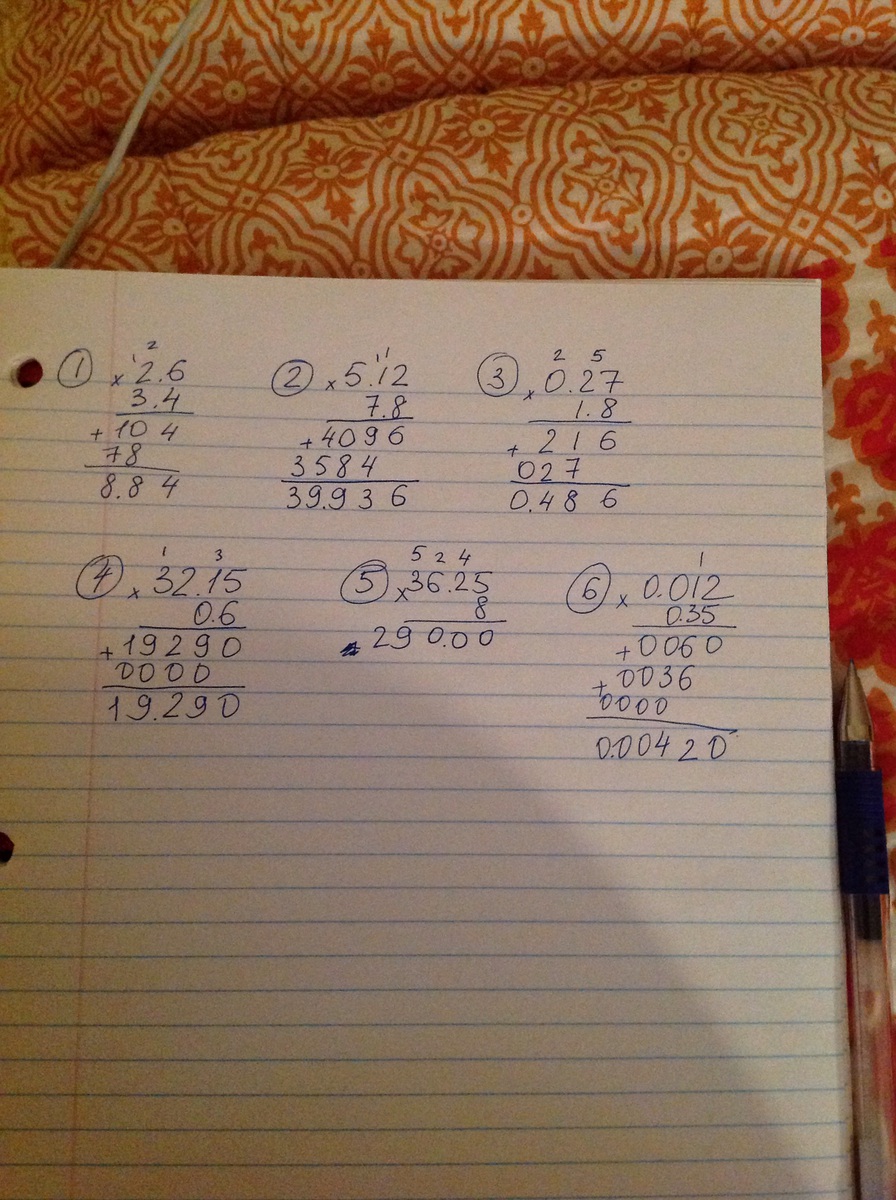 ① 1 2
× 2.6
3.4
+ 10 4
78
8.8 4
② 11
× 5.12
7.8
+ 4096
3584
39.936
③ 2 5
× 0.27
1.8
+ 2 1 6
027
0.48 6
④ 1 3
× 32.15
0.6
+ 19290
0000
19.290
⑤ 5 2 4
× 36.25
8
290.00
⑥ 1
× 0.012
0.35
+ 0060
+ 0036
0000
0.00420